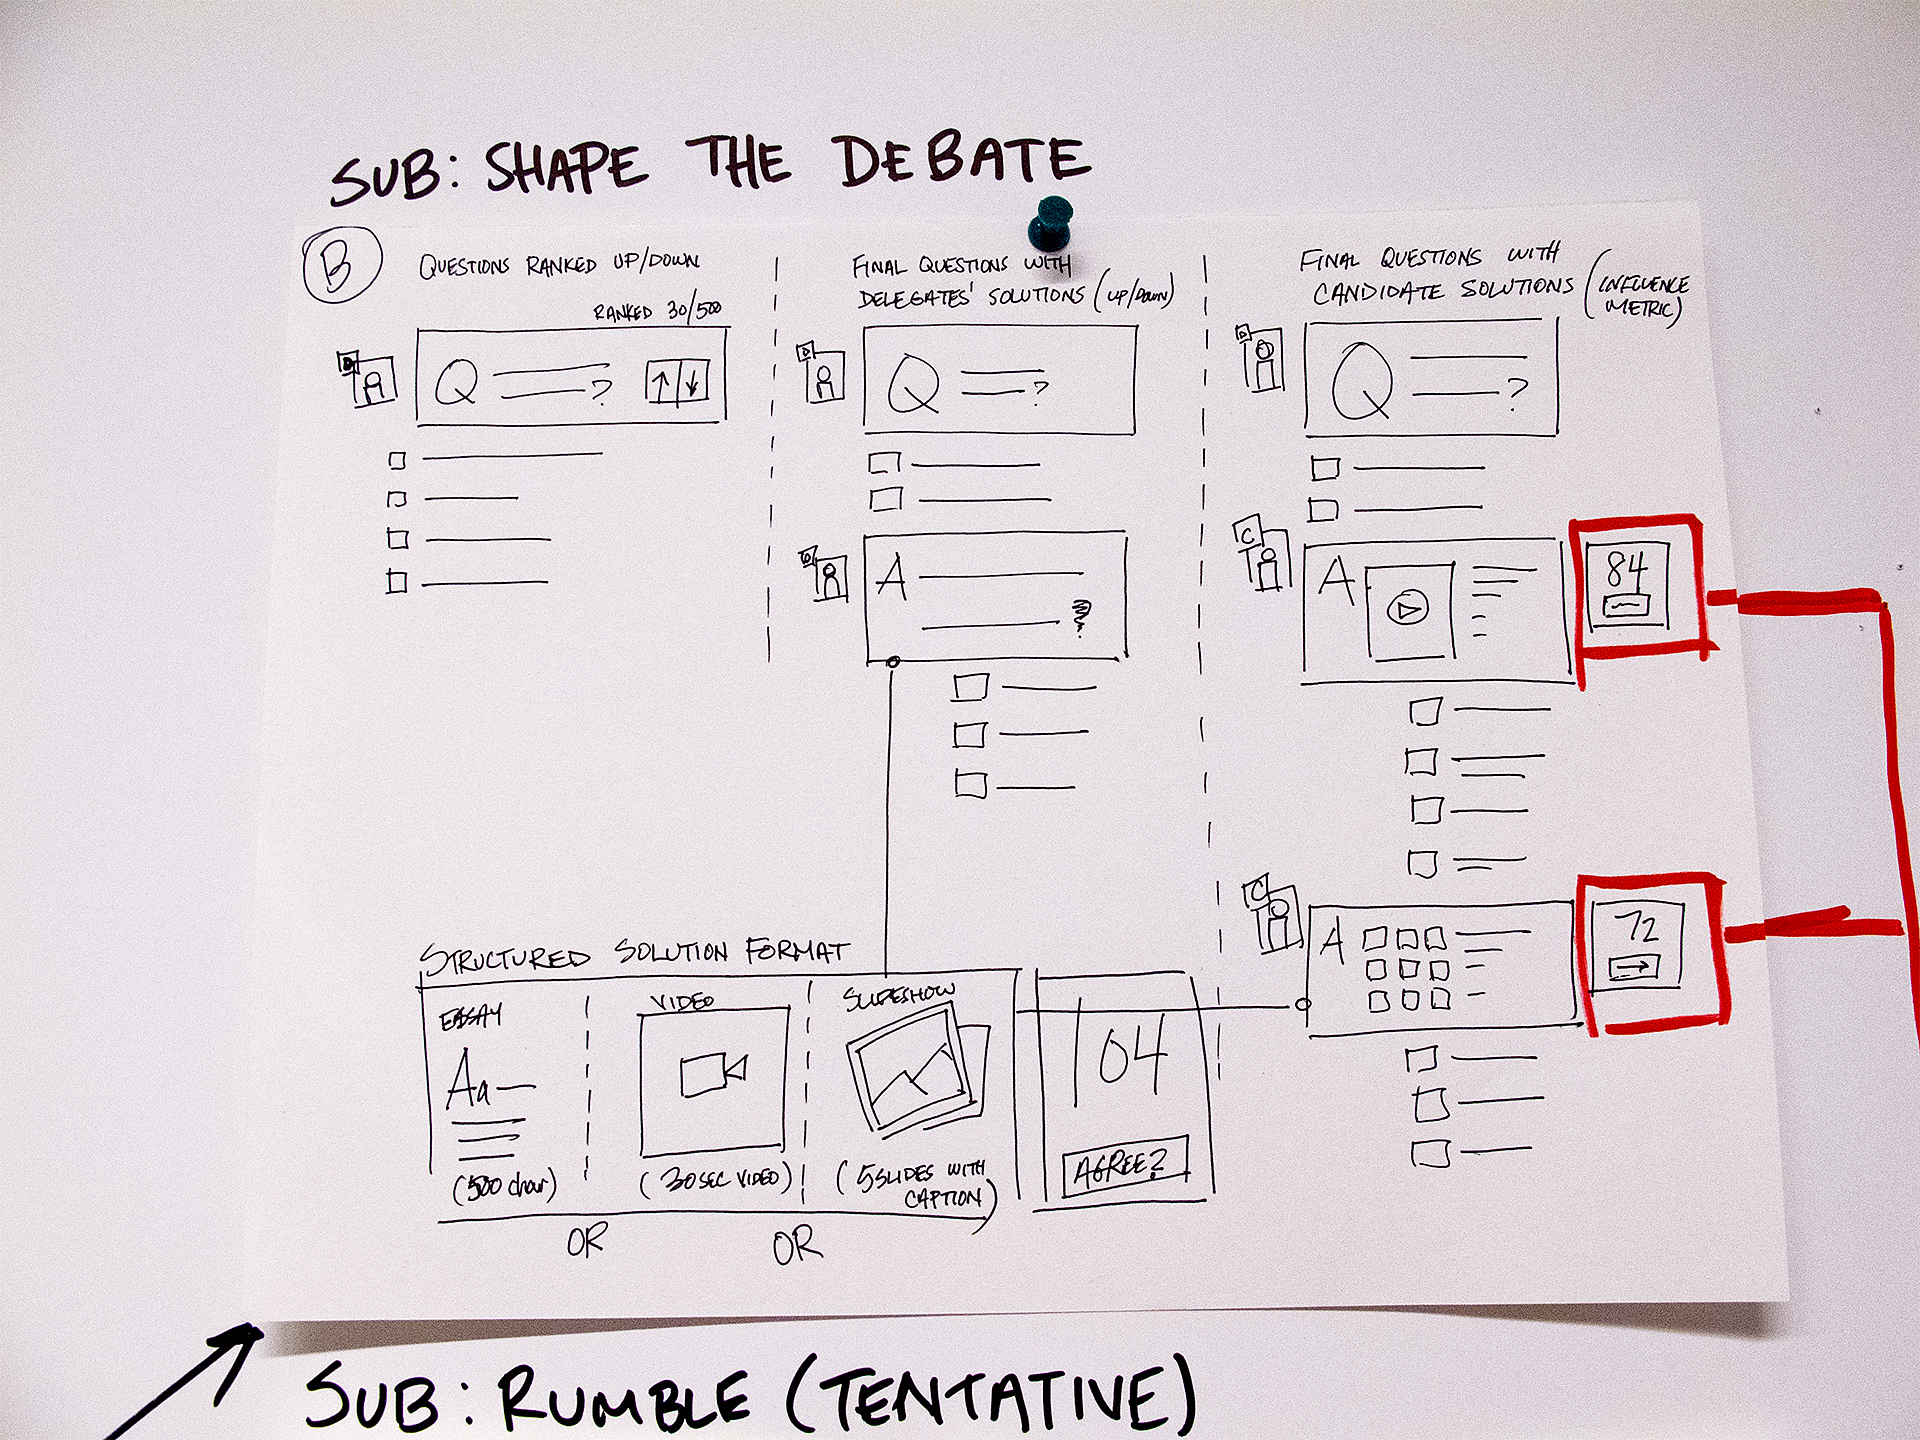 SUB: SHAPE THE DEBATE
B
QUESTIONS RANKED UP/DOWN
RANKED 30/500
Q ?
FINAL QUESTIONS WITH
DELEGATES' SOLUTIONS (UP/DOWN)
D
Q ?
D
A
FINAL QUESTIONS WITH
CANDIDATE SOLUTIONS (INFLUENCE
METRIC)
D
Q ?
C
A
84
C
A
72
STRUCTURED SOLUTION FORMAT
ESSAY
Aa
(500 char)
OR
VIDEO
(30 SEC VIDEO)
OR
SLIDESHOW
(5 SLIDES WITH
CAPTION)
104
AGREE?
SUB: RUMBLE (TENTATIVE)